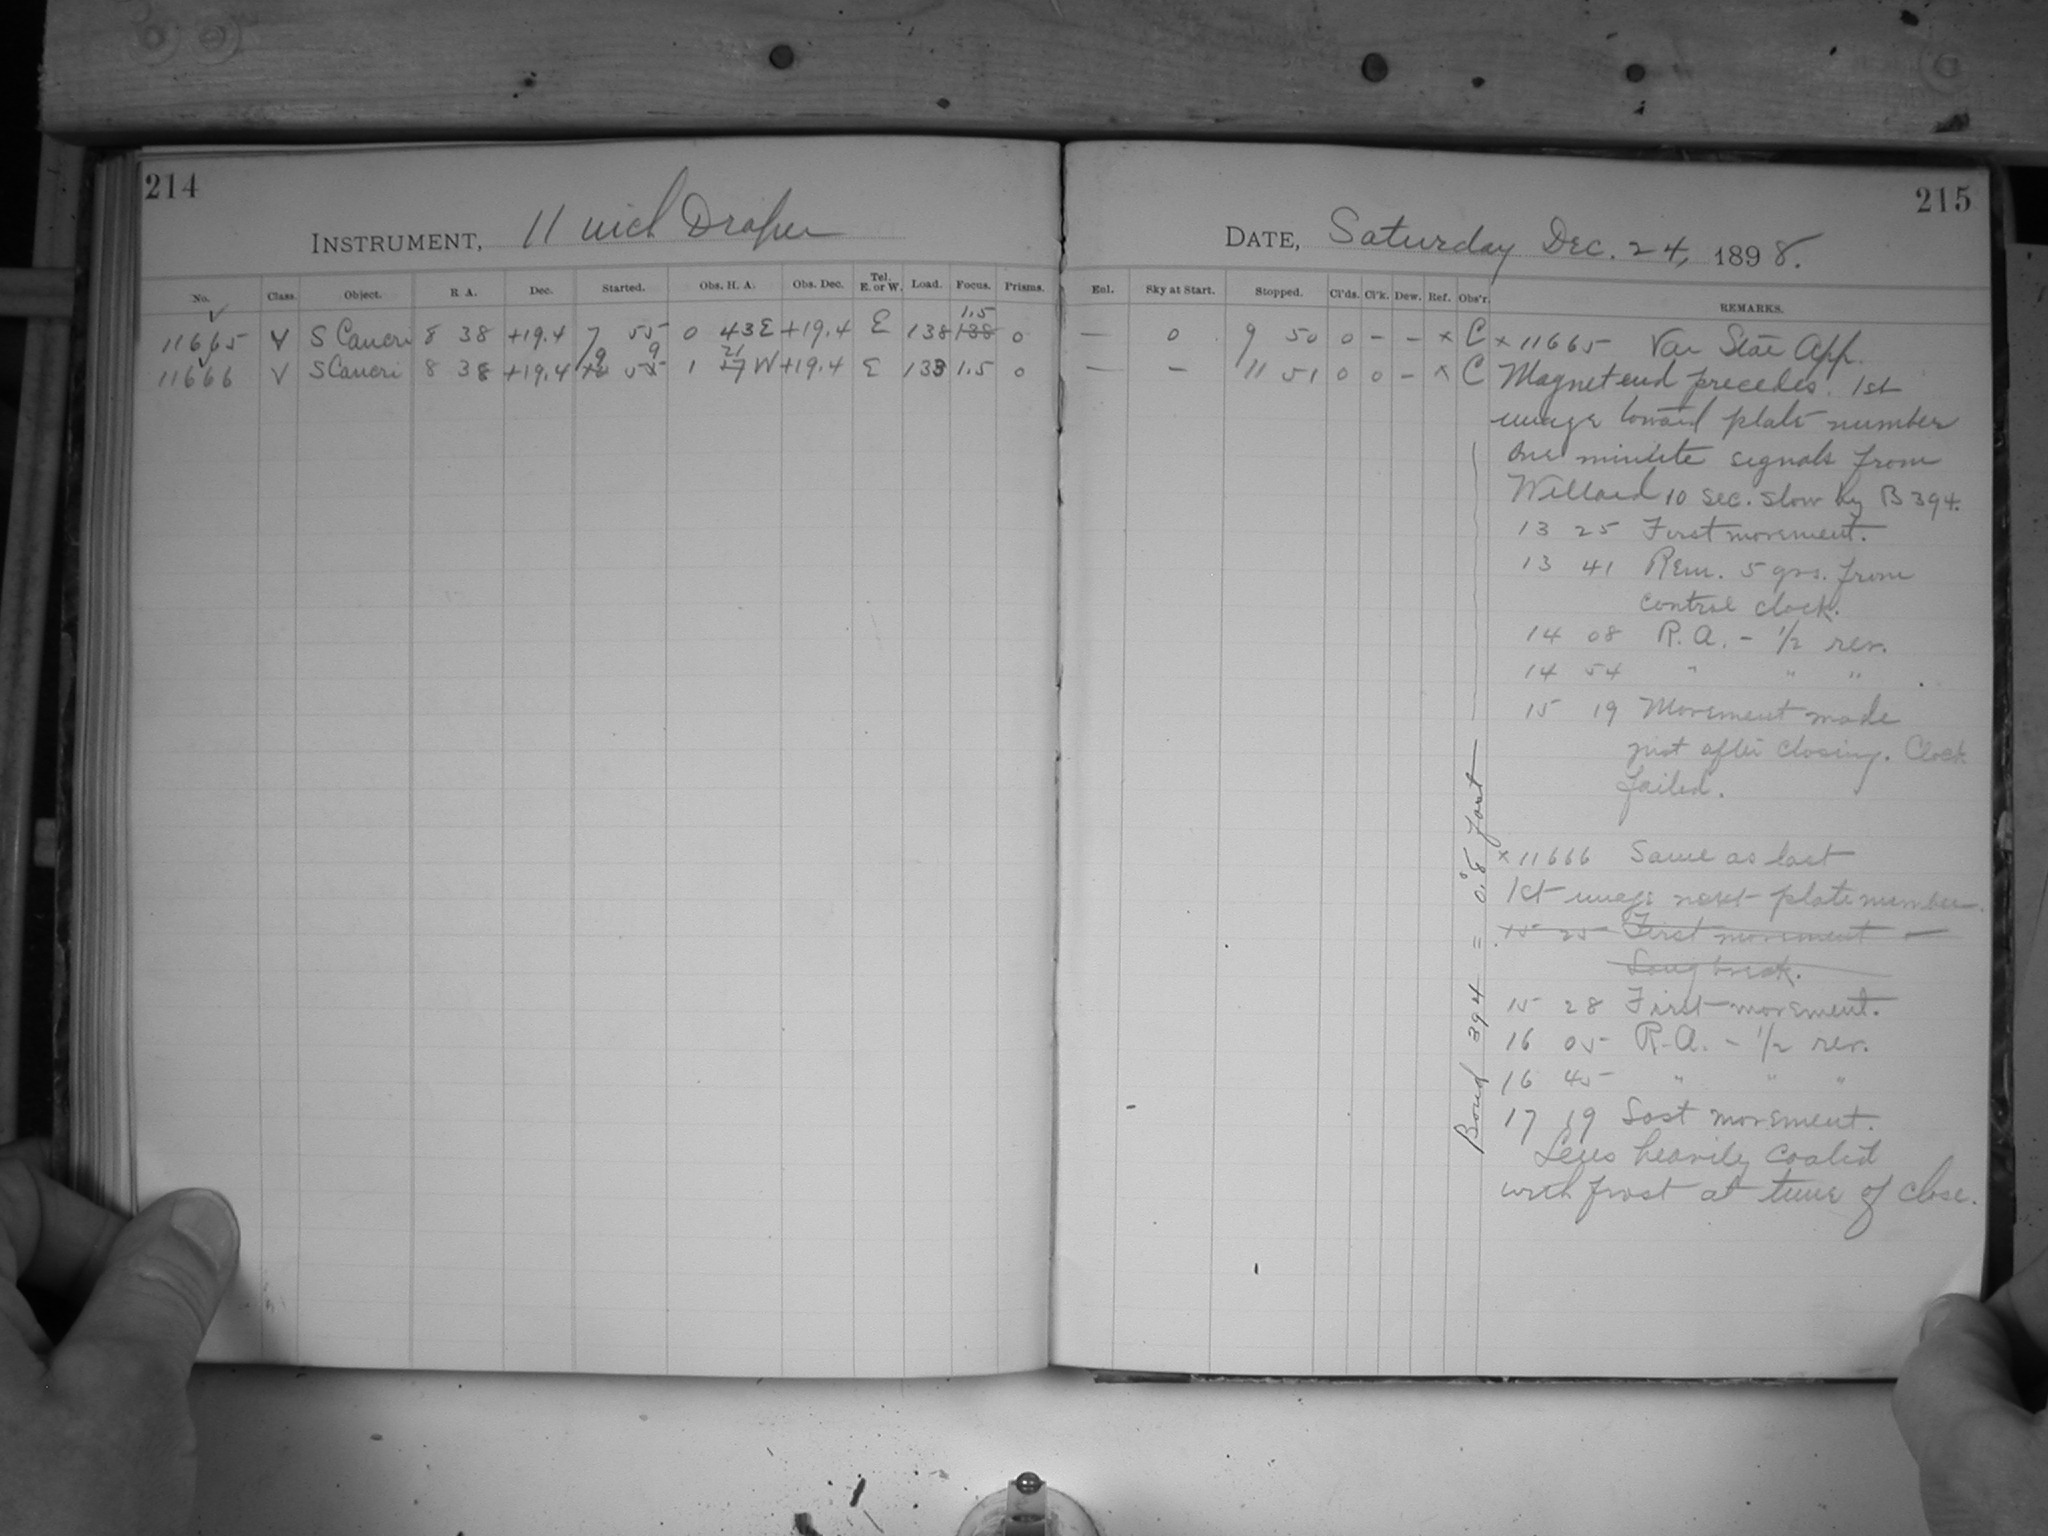 214
215
INSTRUMENT, 11 inch Draper
DATE, Saturday Dec. 24, 1898.
No. Class. Object. R. A. Dec. Started. Obs. H. A. Obs. Dec. Tel. E. or W. Load. Focus. Prisms. Enl. Sky at Start. Stopped. Cl'ds. Cl'k. Dew. Ref. Obs'r. REMARKS.
1.5
11665 V S Cancri 8 38 +19.4 7 55 0 43 E +19.4 E 138 138 0 — 0 9 50 0 - - x C x 11665 Var Star App.
9 9 21
11666 V S Cancri 8 38 +19.4 55 1 17 W +19.4 E 133 1.5 0 — - 11 51 0 0 - x C Magnet end precedes. 1st
image toward plate number
One minute signals from
Willard 10 sec. slow by B 394.
13 25 First movement.
13 41 Rem. 5 grs. from
control clock.
14 08 R. A. - 1/2 rev.
14 54 " " "
15 19 Movement made
just after closing. Clock
failed.
x 11666 Same as last
1st image next plate number.
15 25 First movement -
Long break.
15 28 First movement.
16 05 R. A. - 1/2 rev.
16 45 " " "
17 19 Last movement.
Lens heavily coated
with frost at time of close.
Bond 394 = 0.8 fast